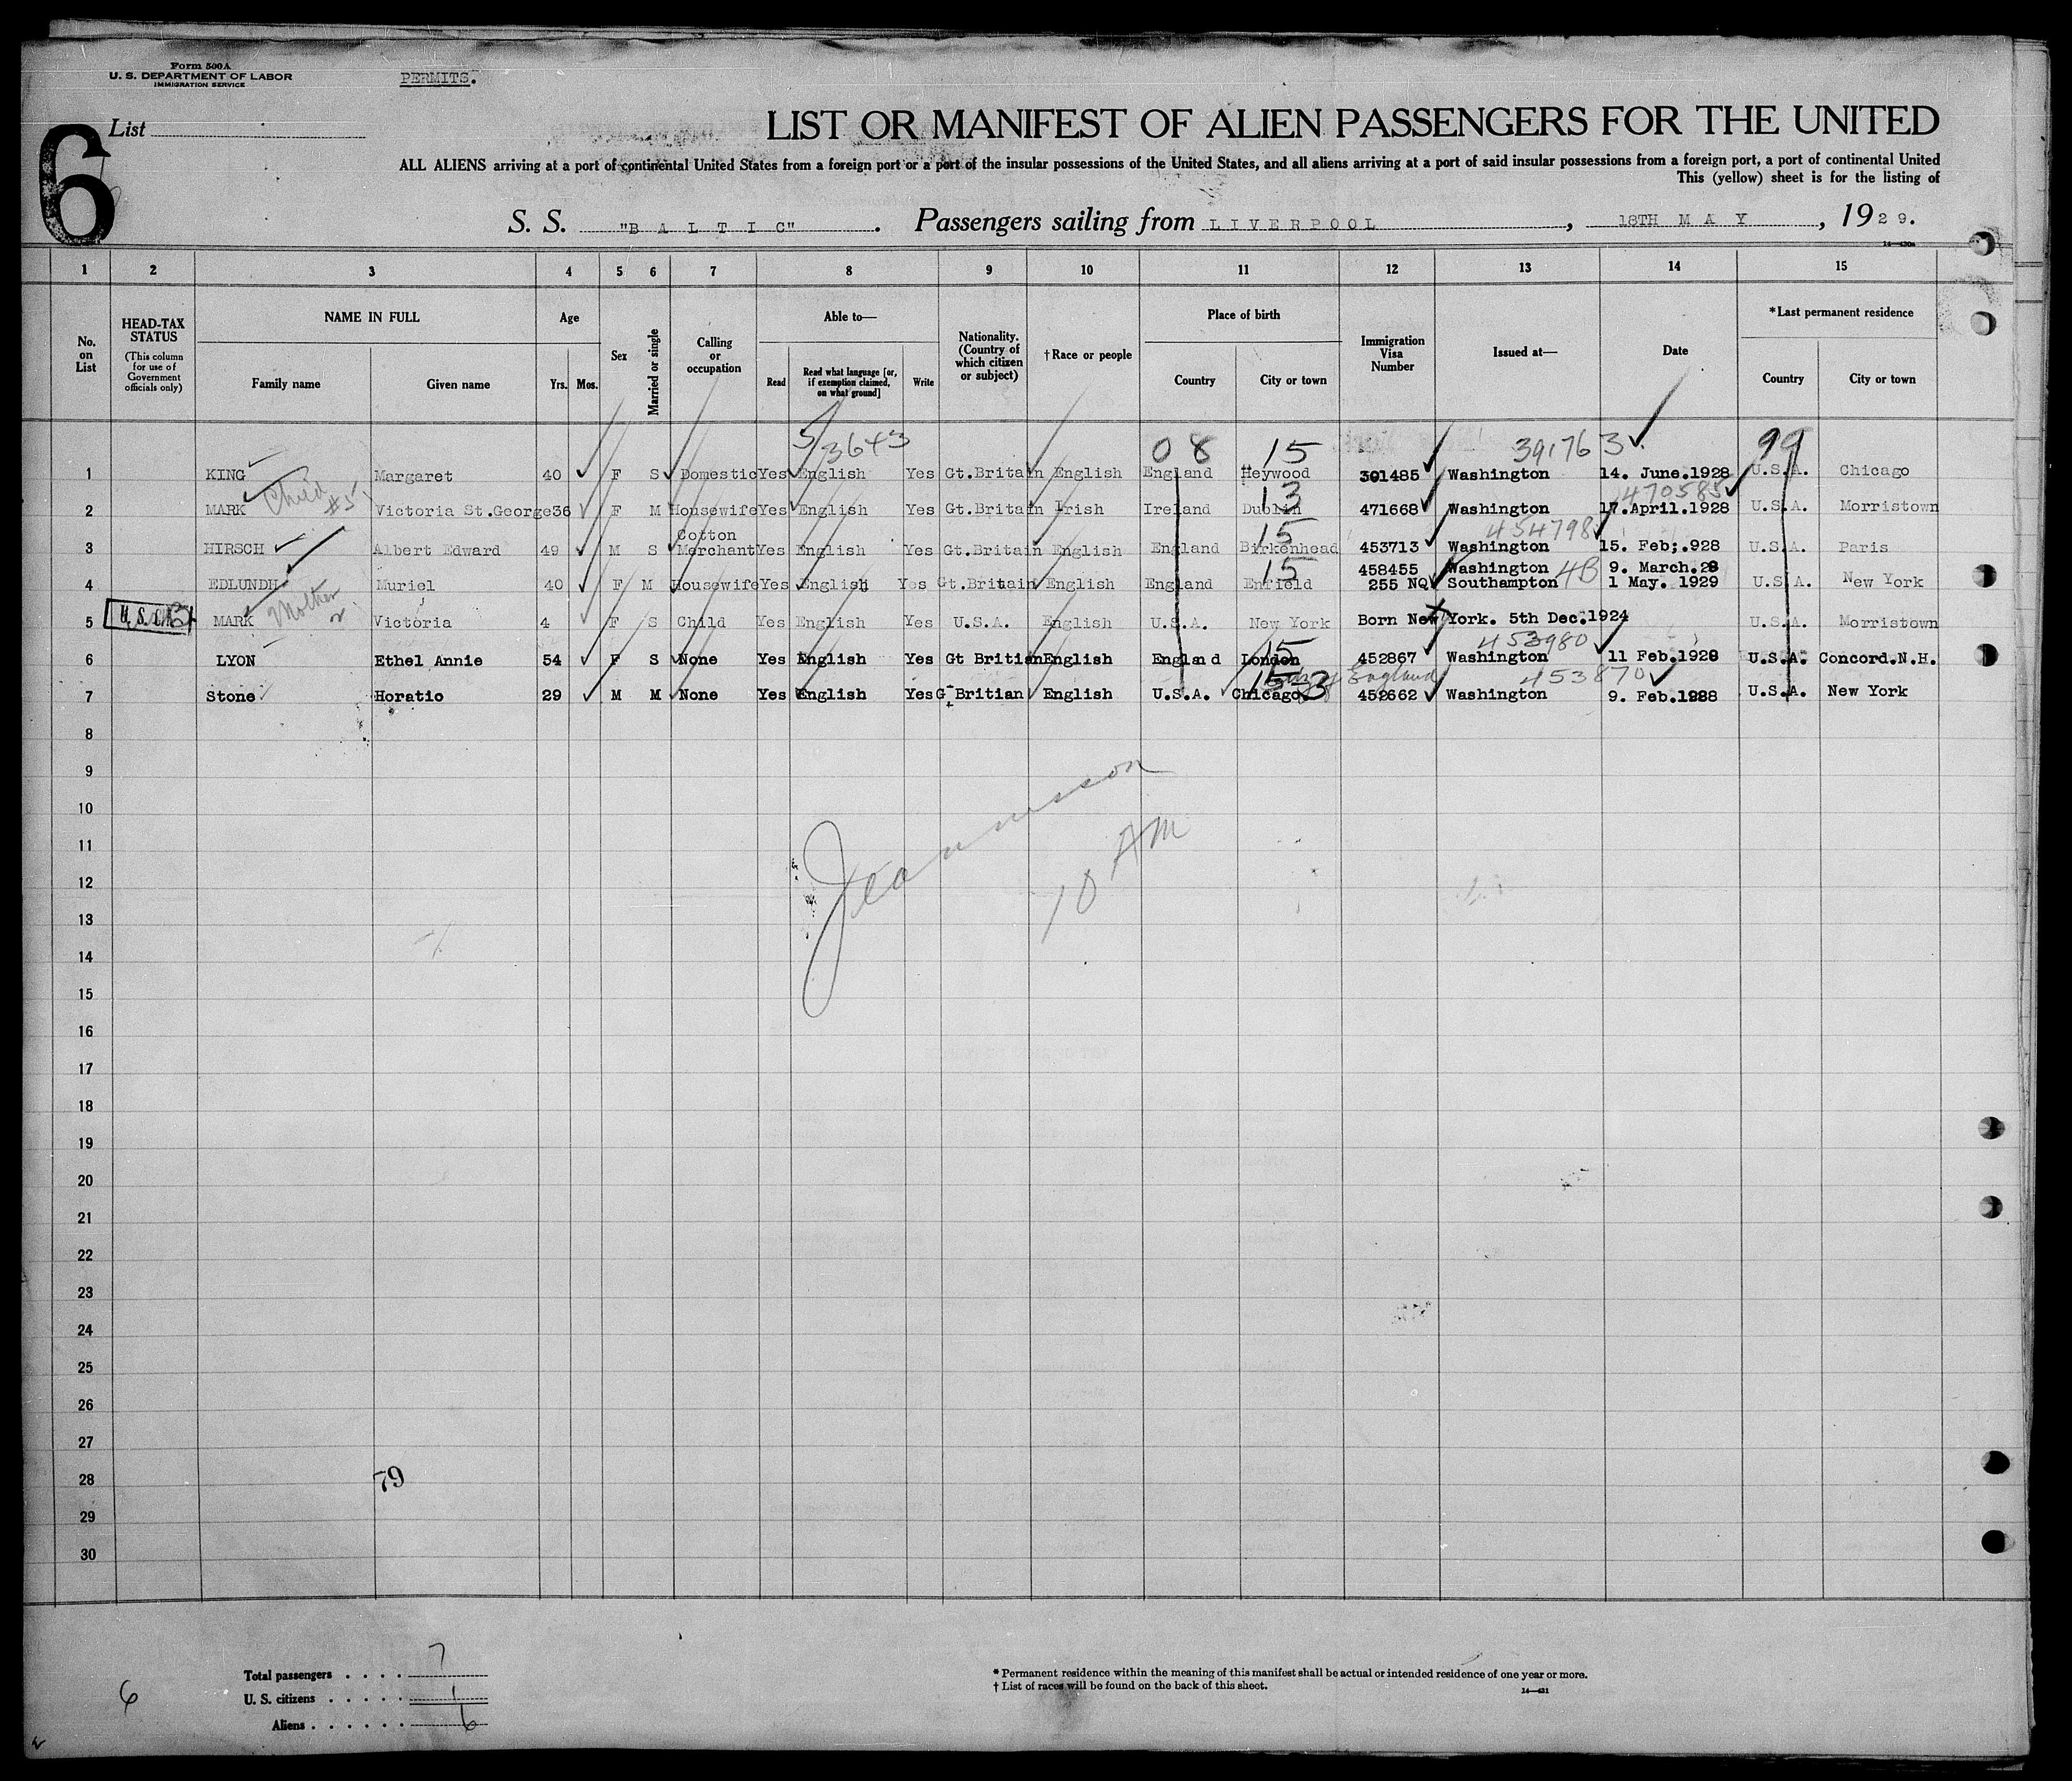 Form 500A
U. S. DEPARTMENT OF LABOR
IMMIGRATION SERVICE
PERMITS.
6
List
LIST OR MANIFEST OF ALIEN PASSENGERS FOR THE UNITED
ALL ALIENS arriving at a port of continental United States from a foreign port or a port of the insular possessions of the United States, and all aliens arriving at a port of said insular possessions from a foreign port, a port of continental United
This (yellow) sheet is for the listing of
S. S. "B A L T I C". Passengers sailing from L I V E R P O O L, 18TH M A Y, 1929.
1 2 3 4 5 6 7 8 9 10 11 12 13 14 15
No. on List
HEAD-TAX STATUS
(This column for use of Government officials only)
NAME IN FULL
Family name Given name
Age
Yrs. Mos.
Sex
Married or single
Calling or occupation
Able to—
Read Read what language [or, if exemption claimed, on what ground] Write
Nationality. (Country of which citizen or subject)
†Race or people
Place of birth
Country City or town
Immigration Visa Number
Issued at—
Date
*Last permanent residence
Country City or town
5/3643 08 15 391763 99
1 KING Margaret 40 F S Domestic Yes English Yes Gt.Britain English England Heywood 391485 Washington 14. June.1928 U.S.A. Chicago
Child #5 13 470585
2 MARK Victoria St.George 36 F M Housewife Yes English Yes Gt.Britain Irish Ireland Dublin 471668 Washington 17.April.1928 U.S.A. Morristown
15 454798
3 HIRSCH Albert Edward 49 M S Cotton Merchant Yes English Yes Gt.Britain English England Birkenhead 453713 Washington 15. Feb;.928 U.S.A. Paris
15 458455 Washington 9. March.28
4 EDLUNDH Muriel 40 F M Housewife Yes English Yes Gt.Britain English England Enfield 255 NQ Southampton 4B 1 May. 1929 U.S.A. New York
Mother 2
5 MARK Victoria 4 F S Child Yes English Yes U.S.A. English U.S.A. New York Born New York. 5th Dec.1924 U.S.A. Morristown
15 453980
6 LYON Ethel Annie 54 F S None Yes English Yes Gt Britian English England London 452867 Washington 11 Feb.1928 U.S.A. Concord.N.H.
15-3 England 453870
7 Stone Horatio 29 M M None Yes English Yes G Britian English U.S.A. Chicago 452662 Washington 9. Feb.1928 U.S.A. New York
8
9
10
11
10 AM
12
13
14
15
16
17
18
19
20
21
22
23
24
25
26
27
28 79
29
30
Total passengers . . . . 7
U. S. citizens . . . . . 1
Aliens . . . . . . 6
6
* Permanent residence within the meaning of this manifest shall be actual or intended residence of one year or more.
† List of races will be found on the back of this sheet.
14—431